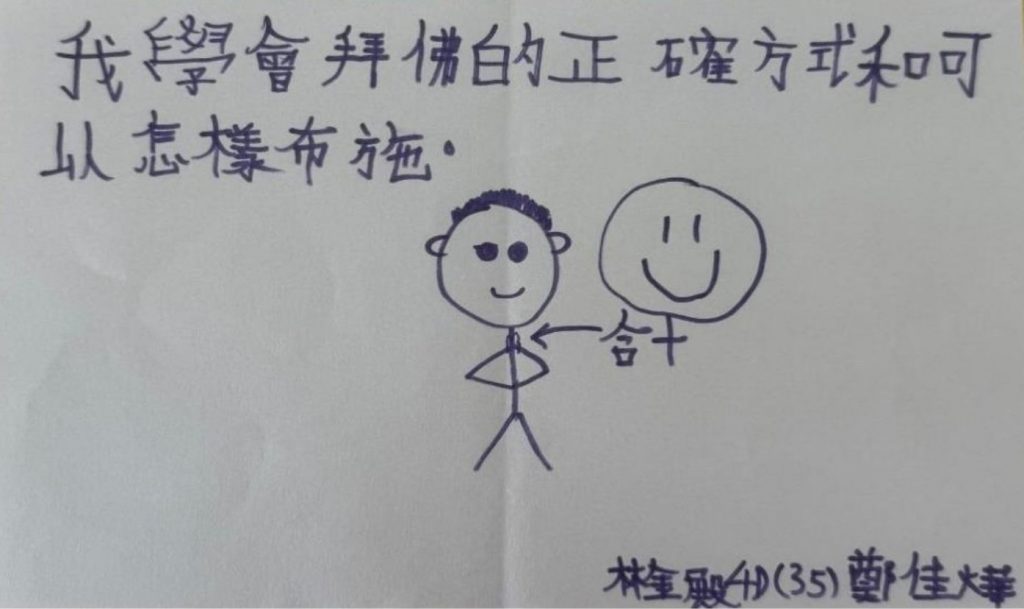 我學會拜佛的正確方式和可
以怎樣布施.
合十
林金殿4D(35)鄭佳燁